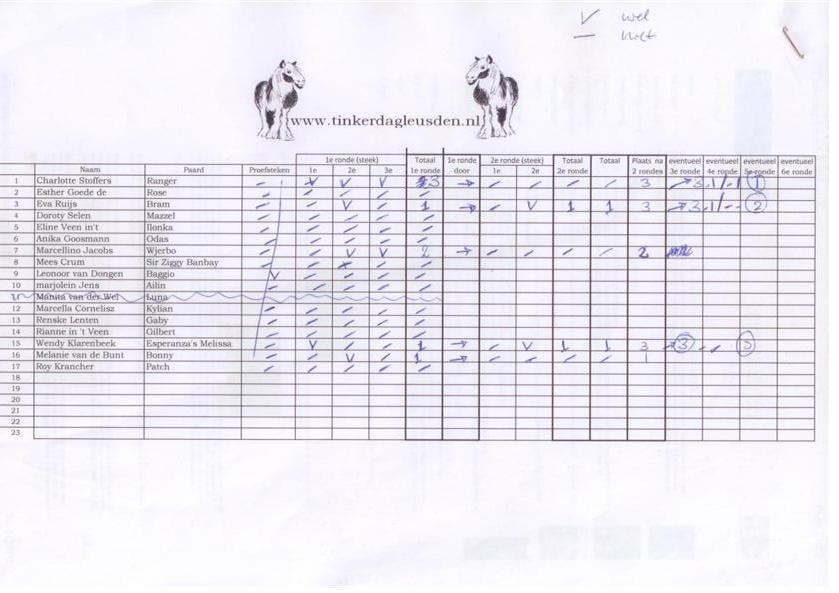 V wel
— niet
www.tinkerdagleusden.nl
1e ronde (steek) Totaal 1e ronde 2e ronde (steek) Totaal Totaal Plaats na eventueel eventueel eventueel eventueel
Naam Paard Proefsteken 1e 2e 3e 1e ronde door 1e 2e 2e ronde 2 rondes 3e ronde 4e ronde 5e ronde 6e ronde
1 Charlotte Stoffers Ranger – V V V 3 → – – – – 3 → 3 1
2 Esther Goede de Rose – – – – –
3 Eva Ruijs Bram – – V – 1 → – V 1 1 3 → 3 2
4 Doroty Selen Mazzel – – – – –
5 Eline Veen in't Ilonka – – – – –
6 Anika Goosmann Odas – – – – –
7 Marcellino Jacobs Wjerbo – – V V 2 → – – – – 2
8 Mees Crum Sir Ziggy Banbay – – – –
9 Leonoor van Dongen Baggio V – – – –
10 marjolein Jens Ailin – – – – –
Manita van der Wel Luna
12 Marcella Cornelisz Kylian – – – – –
13 Renske Lenten Gaby – – – – –
14 Rianne in 't Veen Gilbert – – – – –
15 Wendy Klarenbeek Esperanza's Melissa – V – – 1 → – V 1 1 3 → 3
16 Melanie van de Bunt Bonny – – V – 1 → – – – – 1
17 Roy Krancher Patch – – – – –
18
19
20
21
22
23